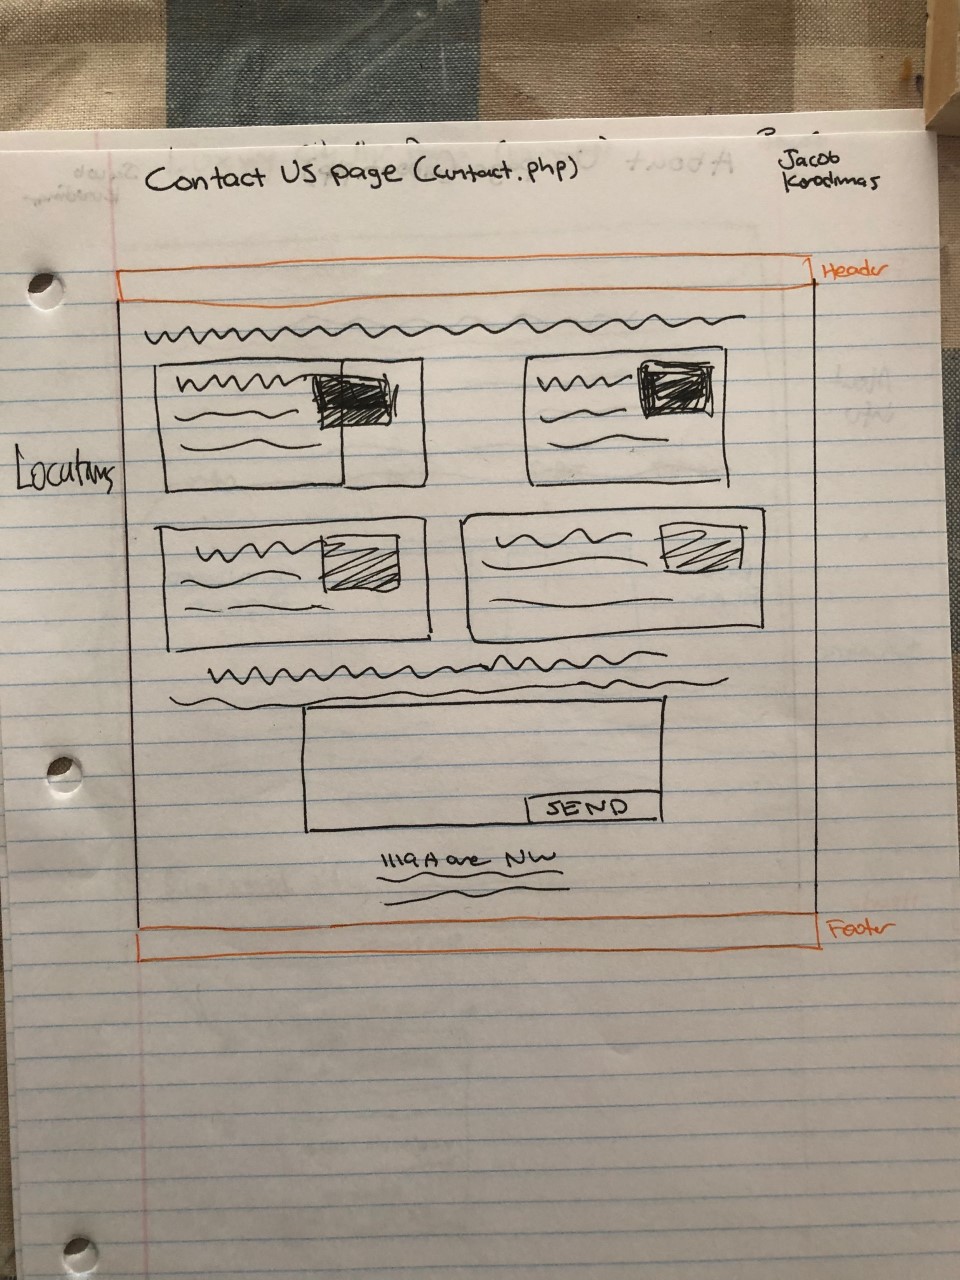 Contact Us page (contact.php)
Jacob
Header
Locations
SEND
1119 A ave NW
Footer